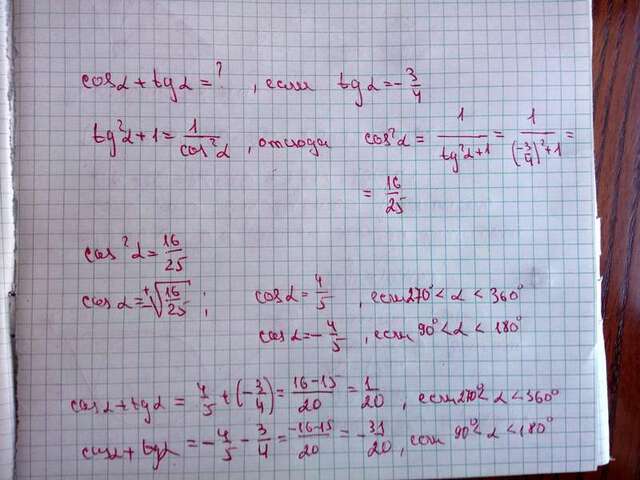 cosα + tgα = ? , если tgα = -3/4
tg²α + 1 = 1/cos²α , отсюда cos²α = 1/(tg²α+1) = 1/((-3/4)²+1) =
= 16/25
cos²α = 16/25
cosα = ±√(16/25) ; cosα = 4/5 , если 270° < α < 360°
cosα = -4/5 , если 90° < α < 180°
cosα + tgα = 4/5 + (-3/4) = (16-15)/20 = 1/20 , если 270° < α < 360°
cosα + tgα = -4/5 - 3/4 = (-16-15)/20 = -31/20 , если 90° < α < 180°